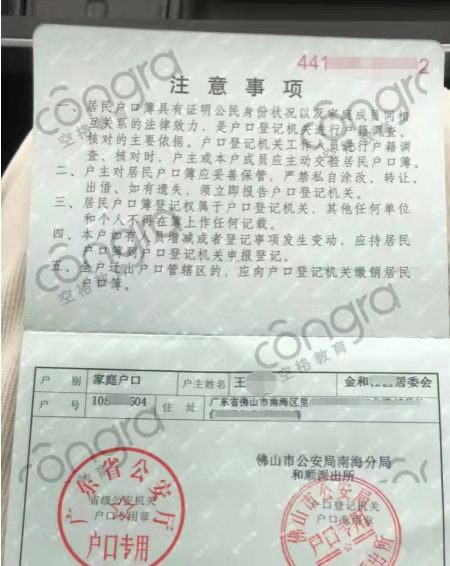 441 2
注意事项
一、居民户口簿具有证明公民身份状况以及家庭成员间相
互关系的法律效力，是户口登记机关进行户籍调查、
核对的主要依据。户口登记机关工作人员进行户籍调
查、核对时，户主或本户成员应主动交验居民户口簿。
二、户主对居民户口簿应妥善保管，严禁私自涂改、转让、
出借、如有遗失，须立即报告户口登记机关。
三、居民户口簿登记权属于户口登记机关，其他任何单位
和个人不得在簿上作任何记载。
四、本户如有人员增减或者登记事项发生变动，应持居民
户口簿到户口登记机关申报登记。
五、全户迁出户口管辖区的，应向户口登记机关缴销居民
户口簿。
户别 家庭户口 户主姓名 王 金和 居委会
户号 105 504 住址 广东省佛山市南海区里
佛山市公安局南海分局
和顺派出所
广东省公安厅
省级公安机关
户口专用章
户口专用
佛山市公安局
户口登记机关
户口专用章
户口专用
congra
空格教育
congra
空格教育
congra
空格教育
congra
空格教育
congra
congra